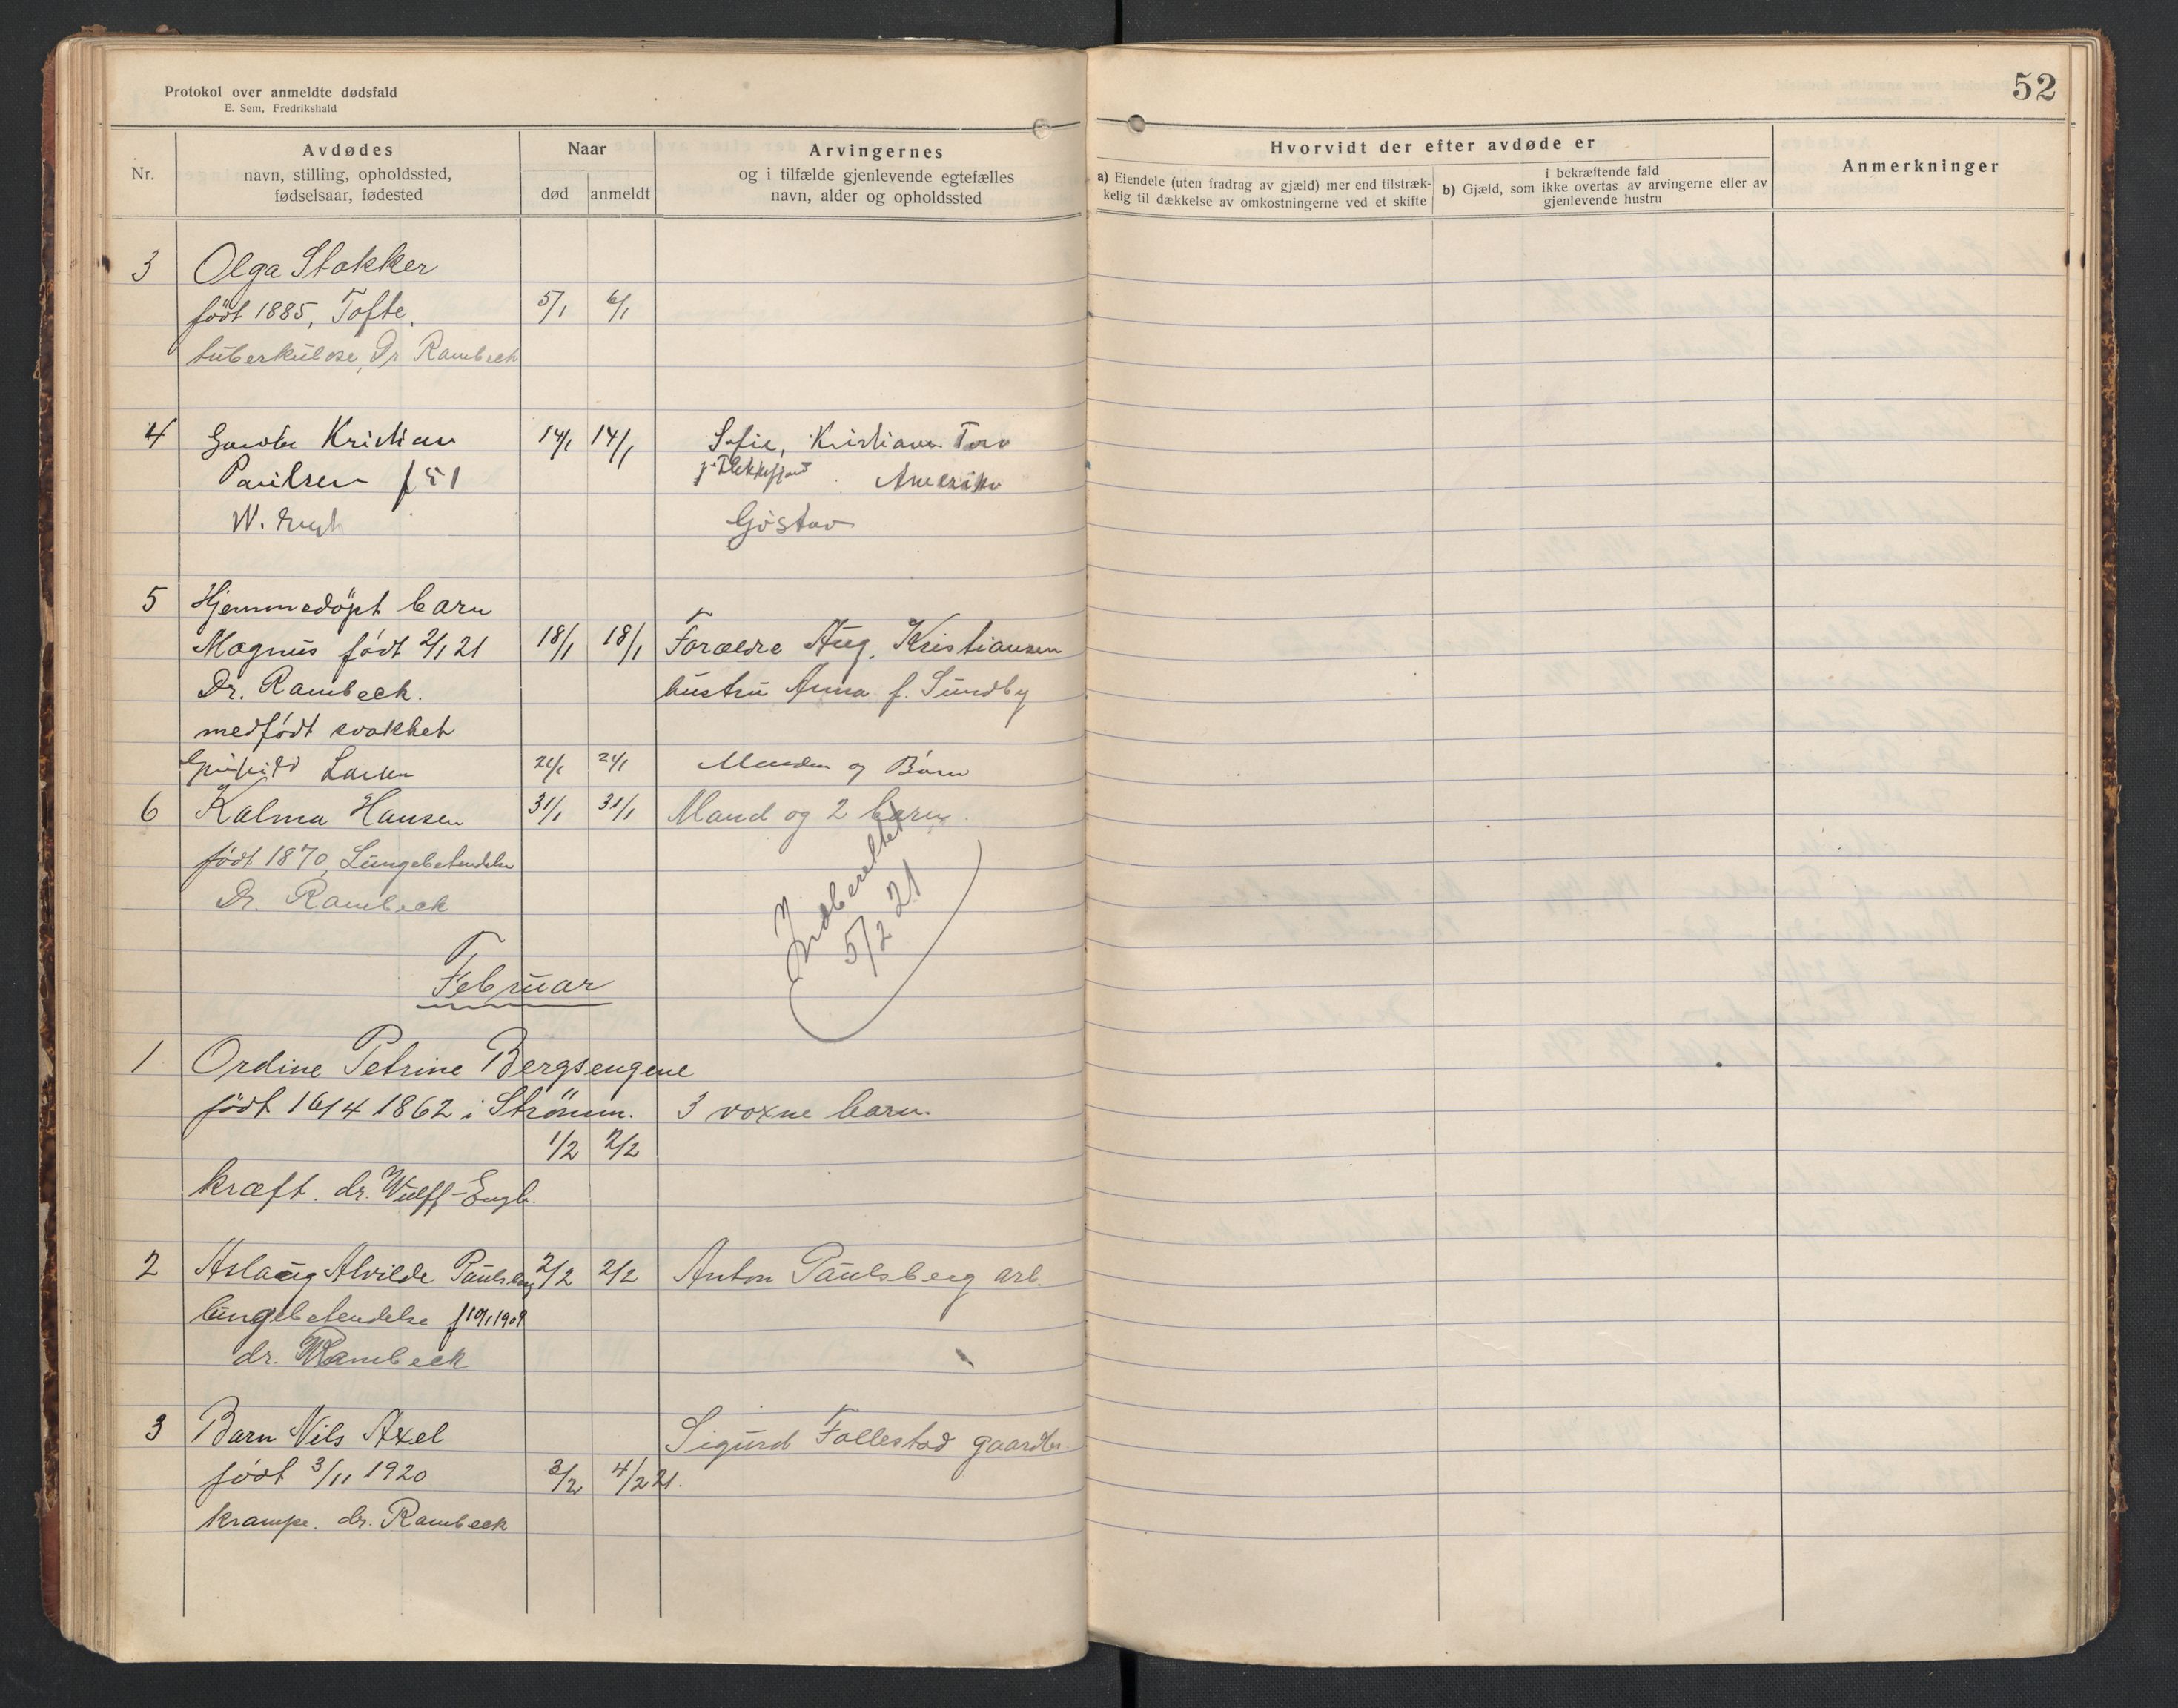 Protokol over anmeldte dødsfald
E. Sem, Fredrikshald
52
Nr.
Avdødes
navn, stilling, opholdssted,
fødselsaar, fødested
Naar
død anmeldt
Arvingernes
og i tilfælde gjenlevende egtefælles
navn, alder og opholdssted
Hvorvidt der efter avdøde er
a) Eiendele (uten fradrag av gjæld) mer end tilstræk-
kelig til dækkelse av omkostningerne ved et skifte
i bekræftende fald
b) Gjæld, som ikke overtas av arvingerne eller av
gjenlevende hustru
Anmerkninger
3 Olga Stokker
født 1885, Tofte. 5/1 6/1
tuberkulose, Dr Rambeck
4 Kristian 14/1 14/1 Sofie, Kristiane
Paulsen f 51 Amerika
W. Gustav
5 Hjemmedöpt barn
Magnus født 2/1 21 18/1 18/1 Forældre Aug. Kristiansen
Dr. Rambeck. hustru Anna f. Sundby
medfödt svakhet
Larsen Manden og Børn
6 Kalma Hansen 31/1 31/1 Mand og 2 barn.
født 1870, Lungebetendelse
Dr. Rambeck
Indberettet
5/2 21
Februar
1 Ordine Petrine Bergsengene
født 16/4 1862 i Strömm. 3 voxne barn.
1/2 2/2
kræft. dr. Wulff-Engh.
2 Aslaug Alvilde Paulsberg 2/2 2/2 Anton Paulsberg arb.
lungebetendelse f 10/1 1909
dr. Rambeck
3 Barn Nils Axel Sigurd Follestad gaardbr.
født 3/11 1920 3/2 4/2 21.
krampe. dr. Rambeck